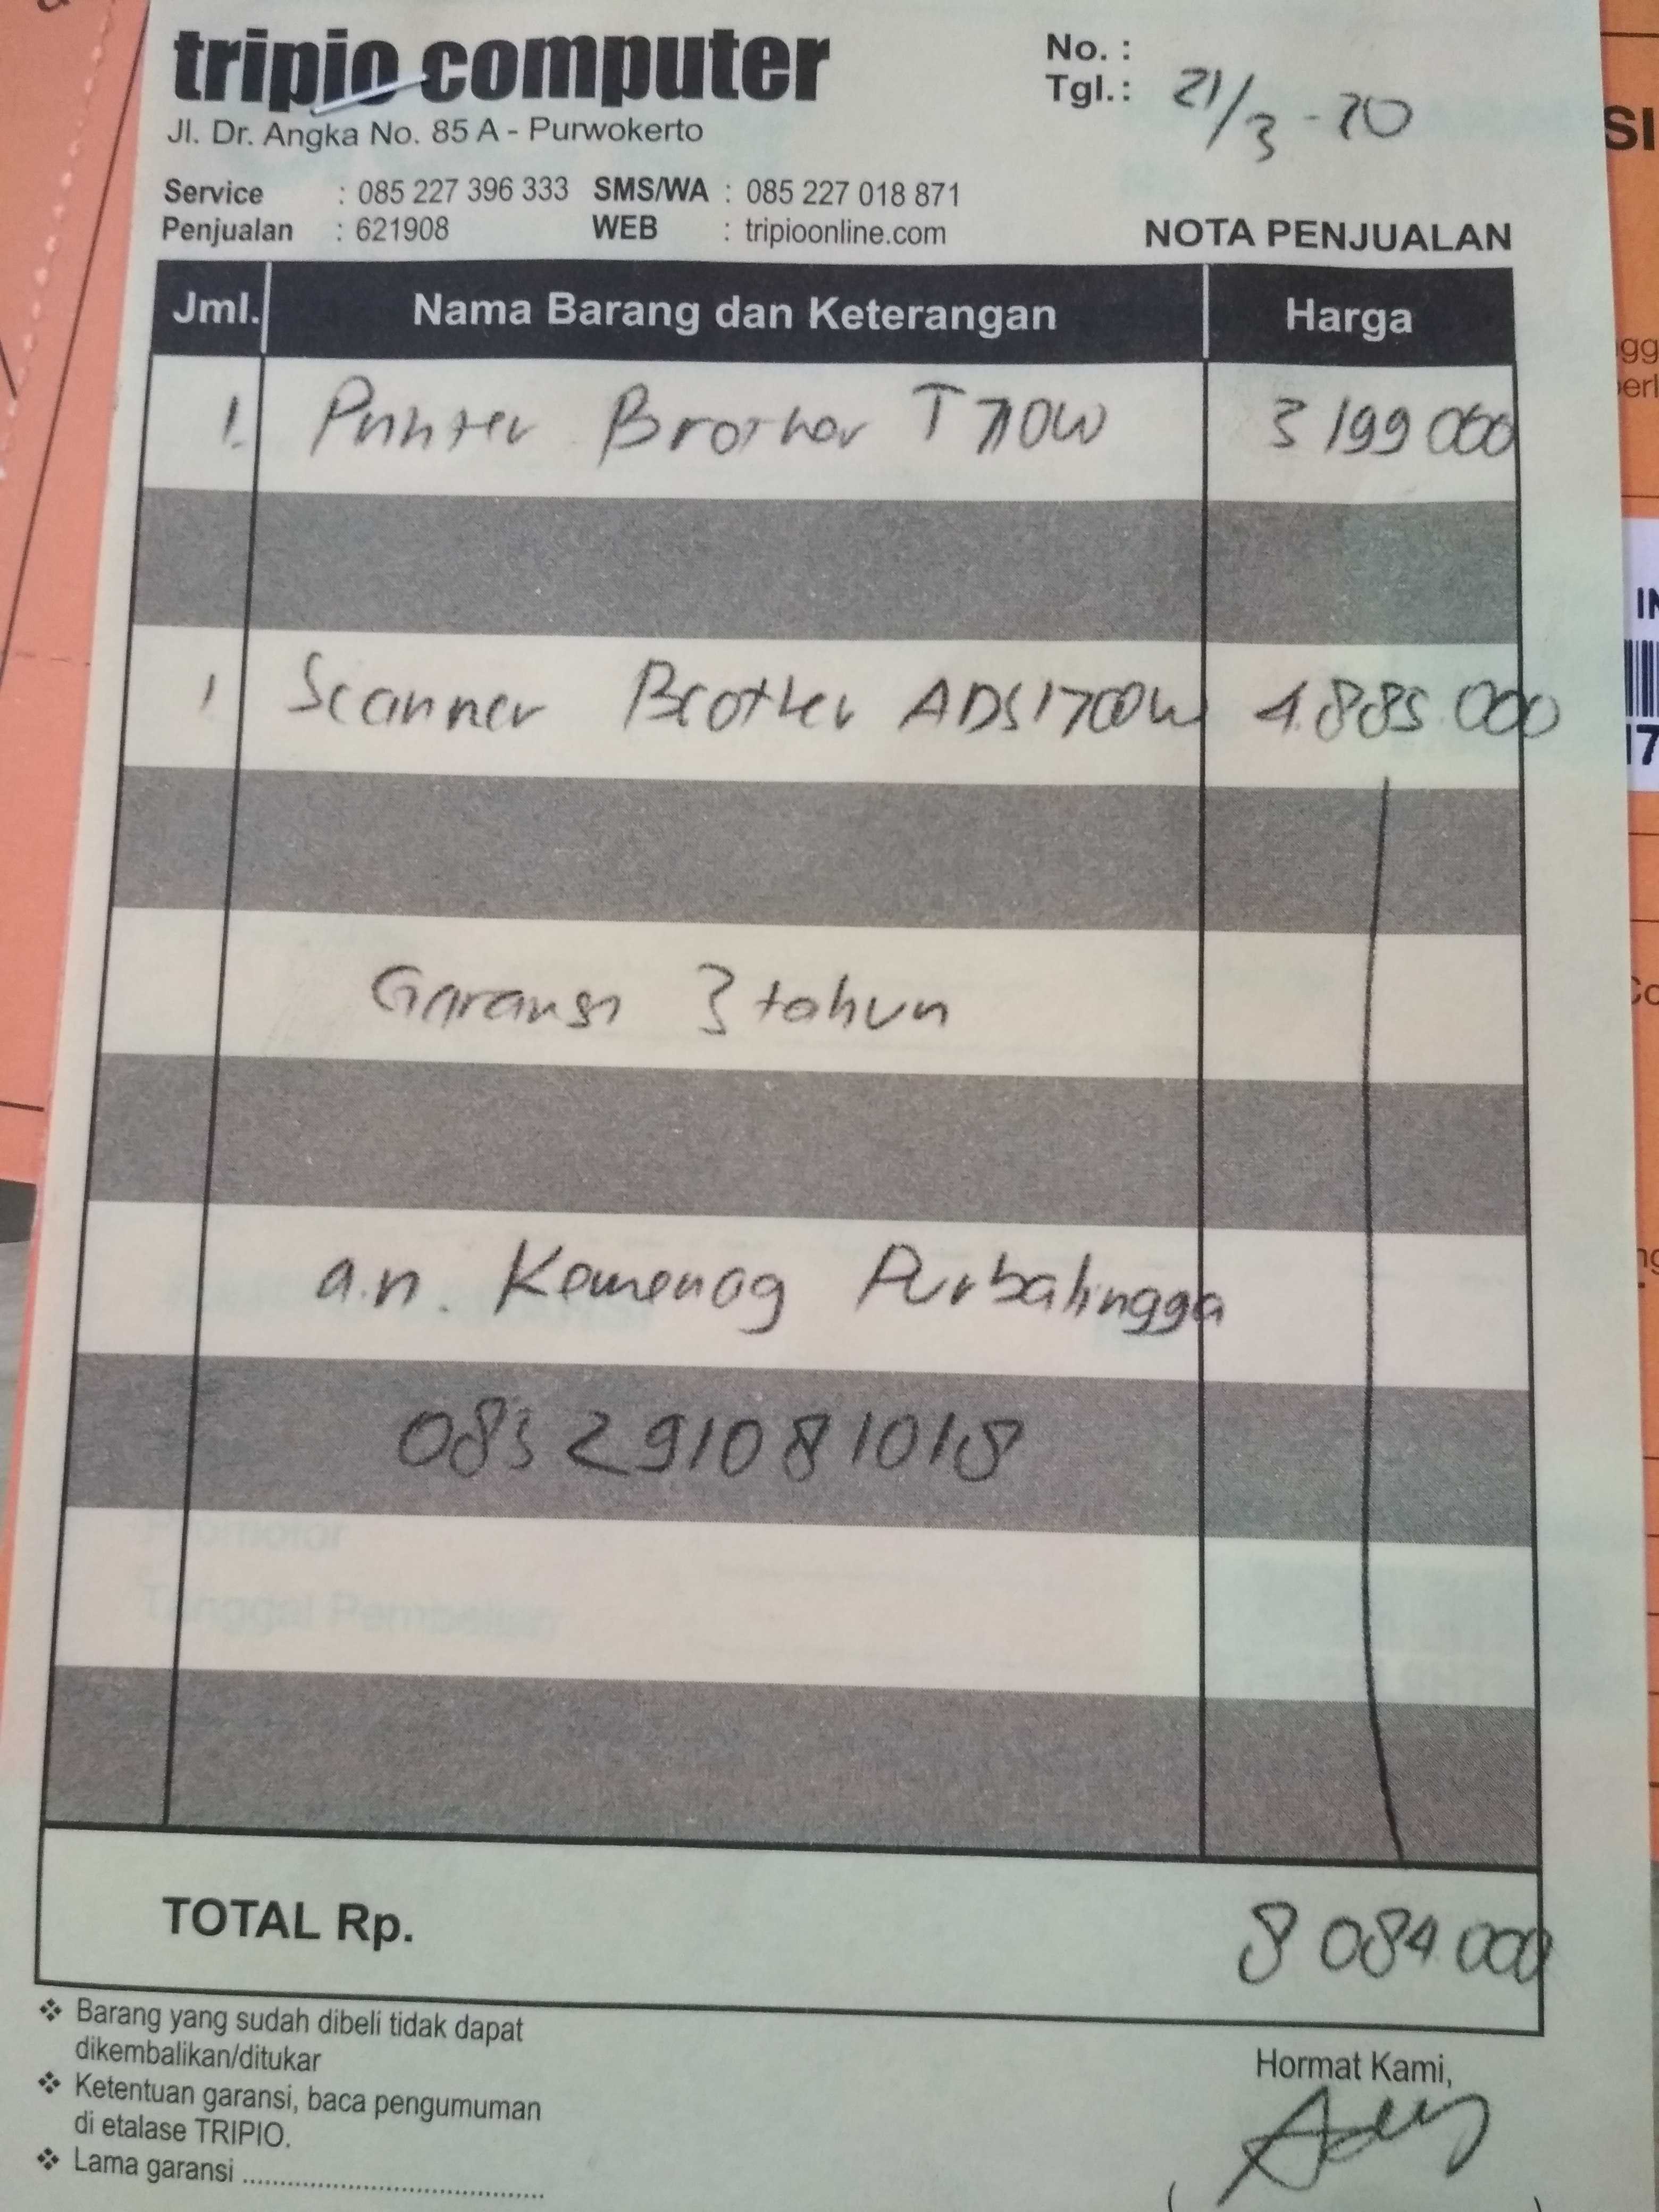 tripio computer
No. :
Jl. Dr. Angka No. 85 A - Purwokerto
Tgl.: 21/3 - 20
Service : 085 227 396 333 SMS/WA : 085 227 018 871
Penjualan : 621908 WEB : tripioonline.com
NOTA PENJUALAN
Jml. Nama Barang dan Keterangan Harga
1. Printer Brother T710W 3 199 000
1 Scanner Brother ADS1700W 4.885.000
Garansi 3 tahun
a.n. Kemenag Purbalingga
083291081018
TOTAL Rp. 8 084 000
❖ Barang yang sudah dibeli tidak dapat
dikembalikan/ditukar
❖ Ketentuan garansi, baca pengumuman
di etalase TRIPIO.
❖ Lama garansi ........................................
Hormat Kami,